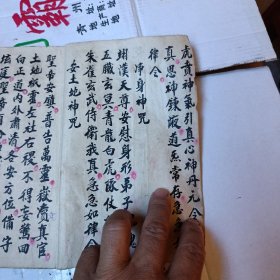 霸
州
地址
生产商
虎賁神氣引真心神丹元令
真思神鍊液道炁常存急
律令
净身神咒
天尊安慰身形弟子
五臟玄冥青龍白虎隊仗
朱雀玄武侍衛我真急急如律令
安土地神咒
聖帝安鎮普告萬靈嶽瀆真官
土地祇靈左社右稷不得妄驚
向正道內外肅清各安方位備守
壇庭